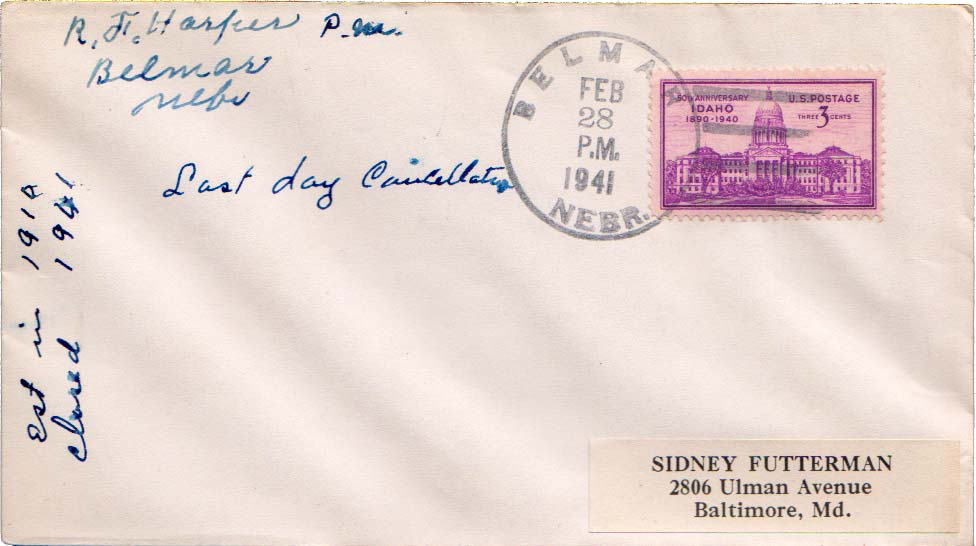 R. F. Harper P.M.
Belmar
Nebr
Last day Cancellation
Est in 1910
closed 1941
BELMAR
FEB
28
P.M.
1941
NEBR.
50TH ANNIVERSARY
IDAHO
1890-1940
U.S. POSTAGE
THREE 3 CENTS
SIDNEY FUTTERMAN
2806 Ulman Avenue
Baltimore, Md.